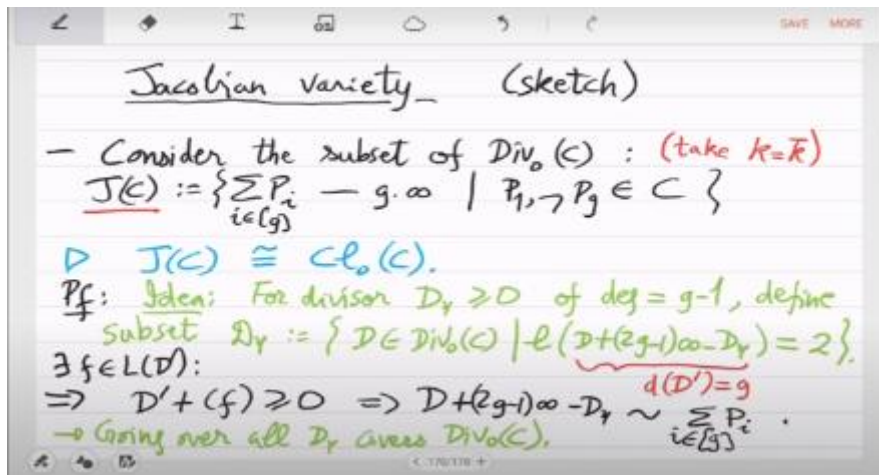 T
SAVE MORE
Jacobian variety (sketch)
– Consider the subset of Div₀(C) : (take k=k̄)
J(C) := {∑_{i∈[g]} P_i – g.∞ | P₁,..,P_g ∈ C }
▷ J(C) ≅ Cl₀(C).
Pf: Idea: For divisor D_γ ≥0 of deg = g-1, define
subset 𝒟_γ := { D∈ Div₀(C) | ℓ(D+(2g-1)∞-D_γ) = 2}.
∃ f∈L(D'): d(D')=g
⇒ D'+(f) ≥ 0 ⇒ D+(2g-1)∞ -D_γ ~ ∑_{i∈[g]} P_i .
→ Going over all D_γ covers Div₀(C).
< 170/170 +